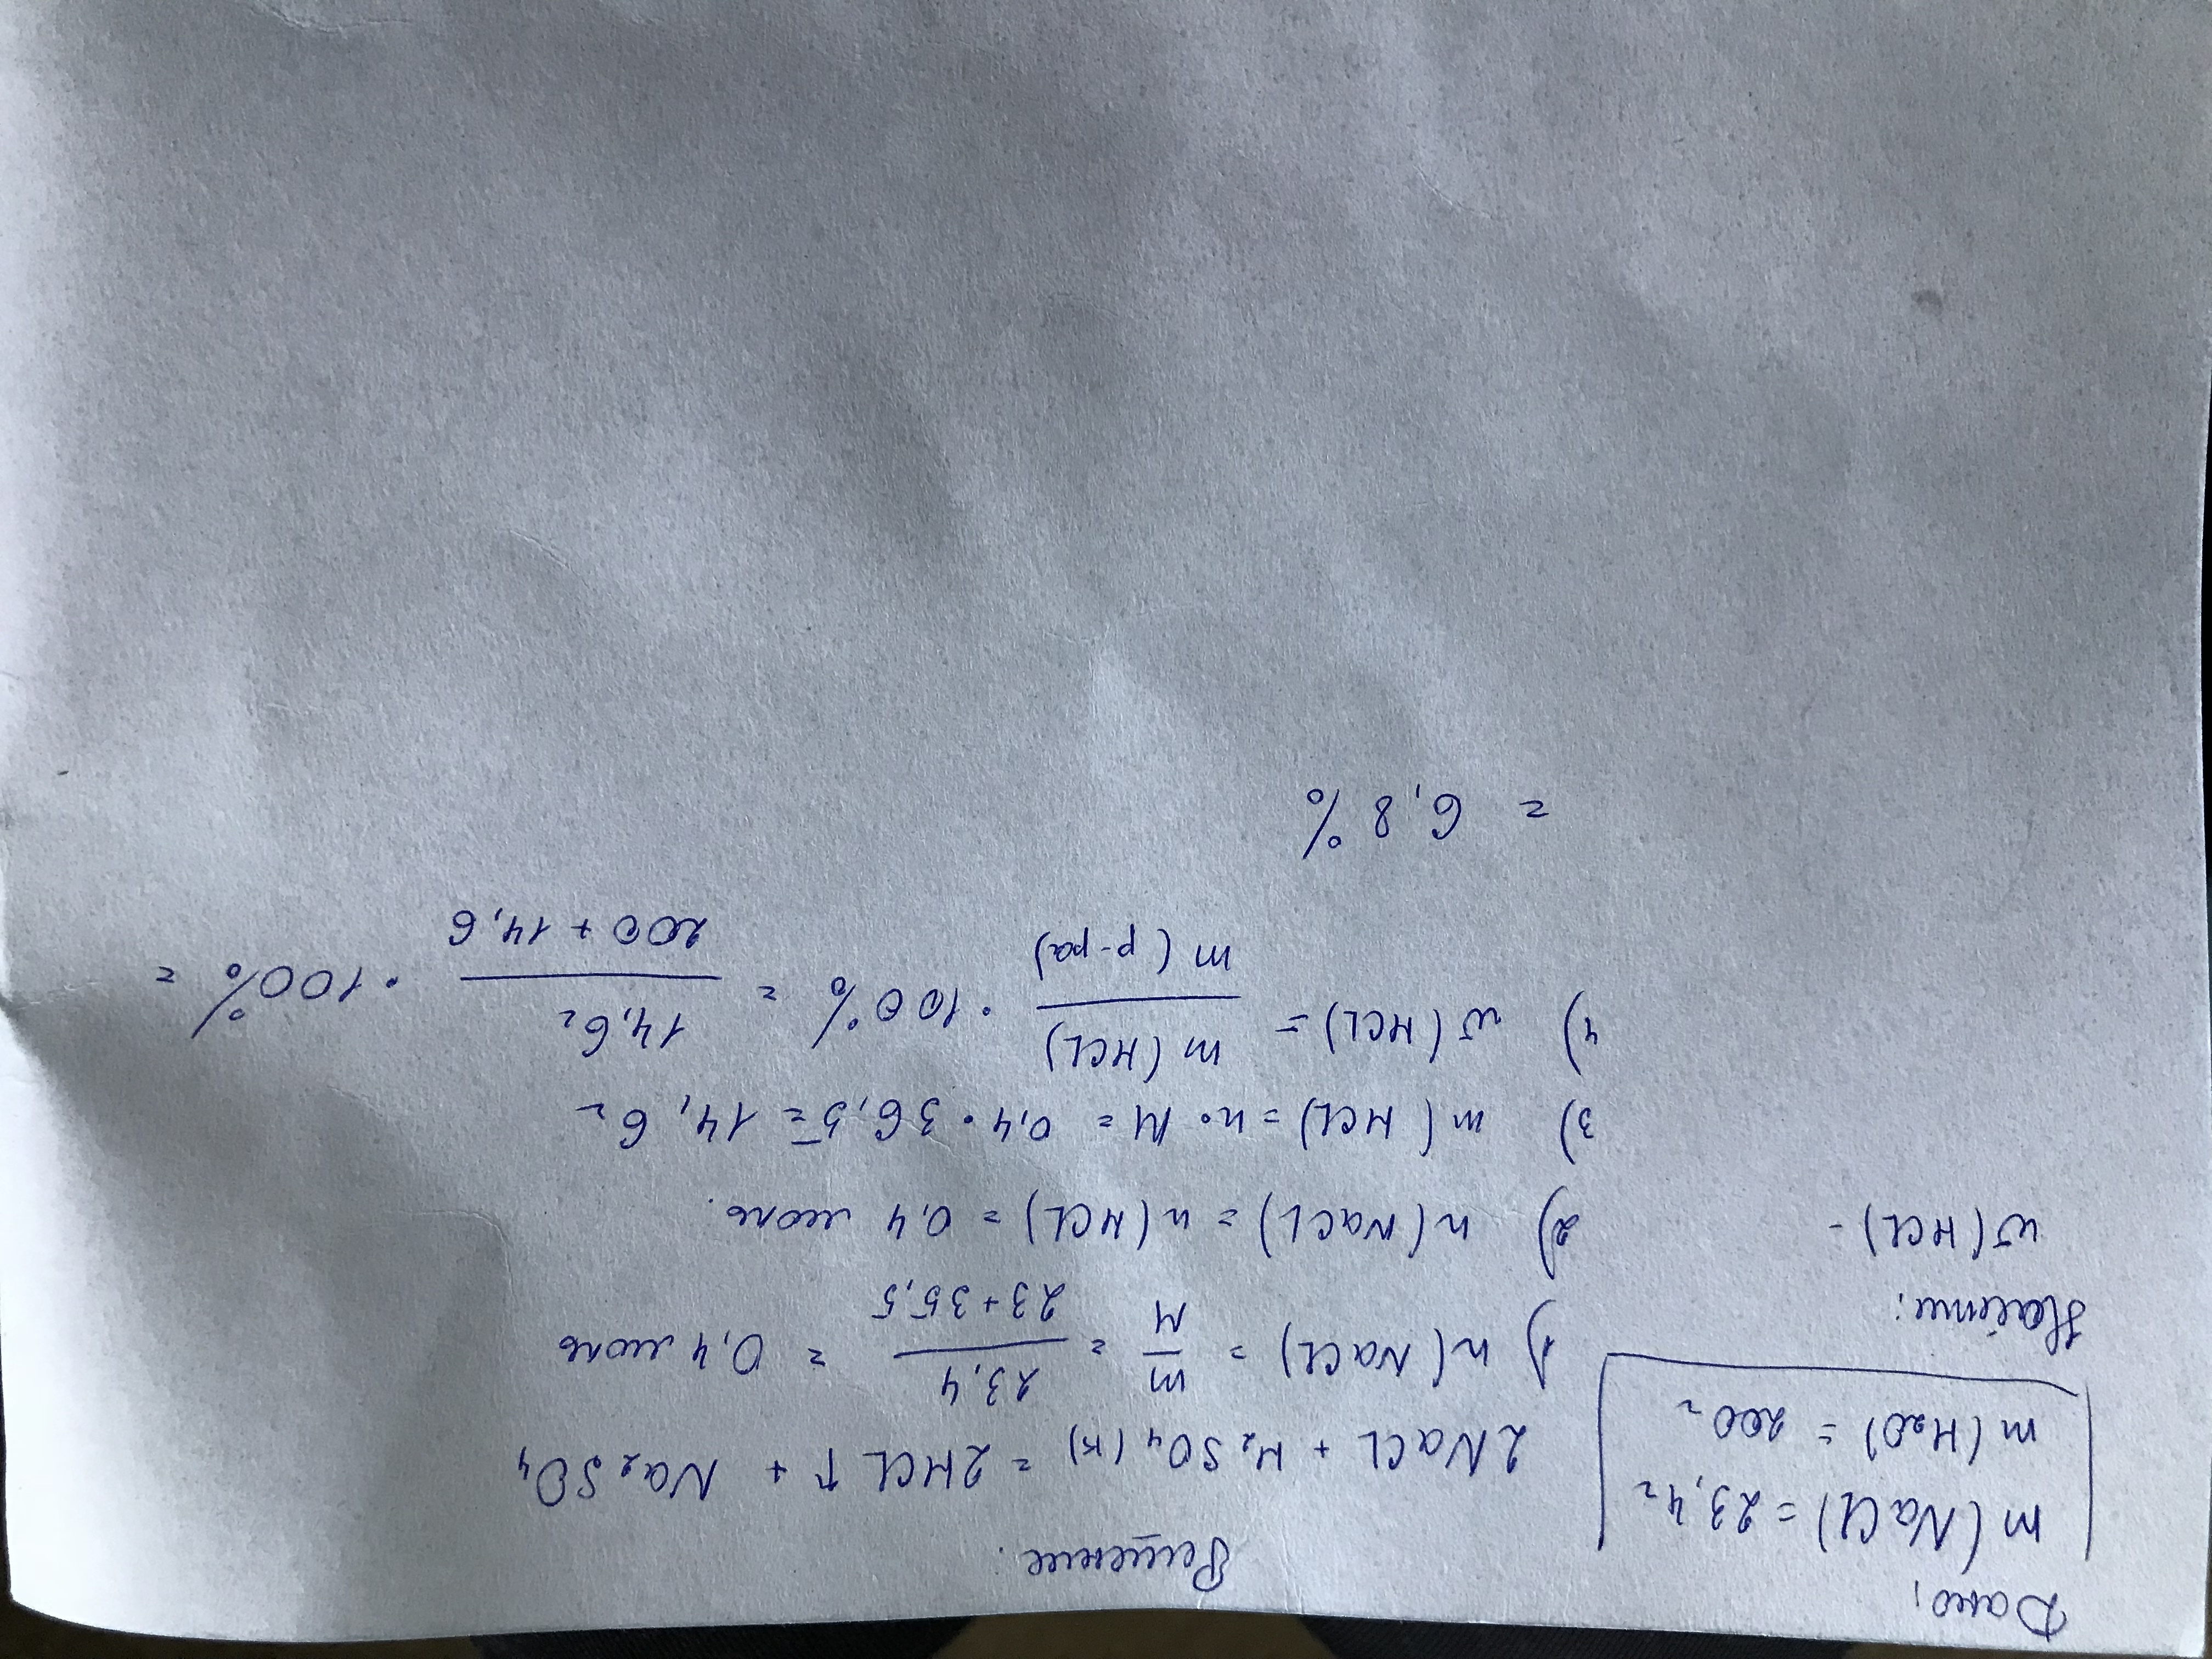 Дано:
m(NaCl) = 23,4г
m(H₂O) = 200г
Найти:
ω(HCl) -
Решение.
2NaCl + H₂SO₄(к) = 2HCl↑ + Na₂SO₄
1) n(NaCl) = m/M = 23,4/23+35,5 = 0,4 моль
2) n(NaCl) = n(HCl) = 0,4 моль.
3) m(HCl) = n·M = 0,4·36,5 = 14,6г
4) ω(HCl) = m(HCl)/m(р-ра) · 100% = 14,6г/200+14,6 · 100% =
= 6,8%